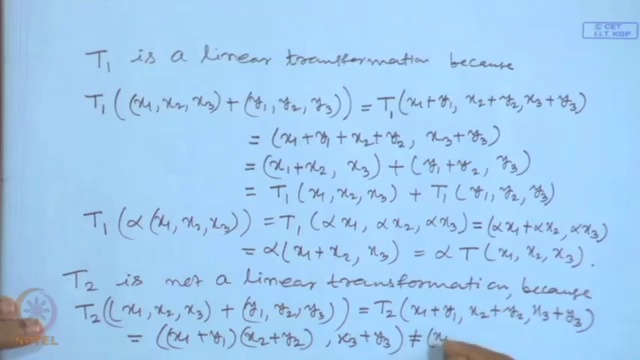 © CET
I.I.T. KGP
T₁ is a linear transformation because
T₁((x₁, x₂, x₃) + (y₁, y₂, y₃)) = T₁(x₁+y₁, x₂+y₂, x₃+y₃)
= (x₁+y₁+x₂+y₂, x₃+y₃)
= (x₁+x₂, x₃) + (y₁+y₂, y₃)
= T₁(x₁, x₂, x₃) + T₁(y₁, y₂, y₃)
T₁(α(x₁, x₂, x₃)) = T₁(αx₁, αx₂, αx₃) = (αx₁+αx₂, αx₃)
= α(x₁+x₂, x₃) = αT(x₁, x₂, x₃).
T₂ is not a linear transformation, because
T₂((x₁, x₂, x₃) + (y₁, y₂, y₃)) = T₂(x₁+y₁, x₂+y₂, x₃+y₃)
= ((x₁+y₁)(x₂+y₂), x₃+y₃) ≠ (x
NPTEL